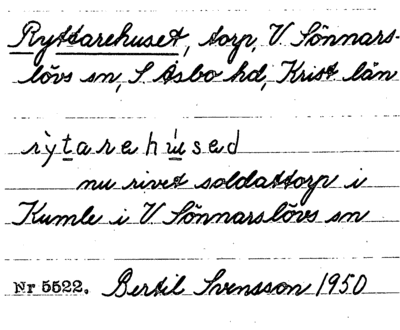 Ryttarehuset, torp, V. Sönnars-
lövs sn, S Åsbo hd, Krist län
rỳtarehúsed
nu rivet soldattorp i
Kumle i V Sönnarslövs sn
Nr 5522. Bertil Svensson 1950